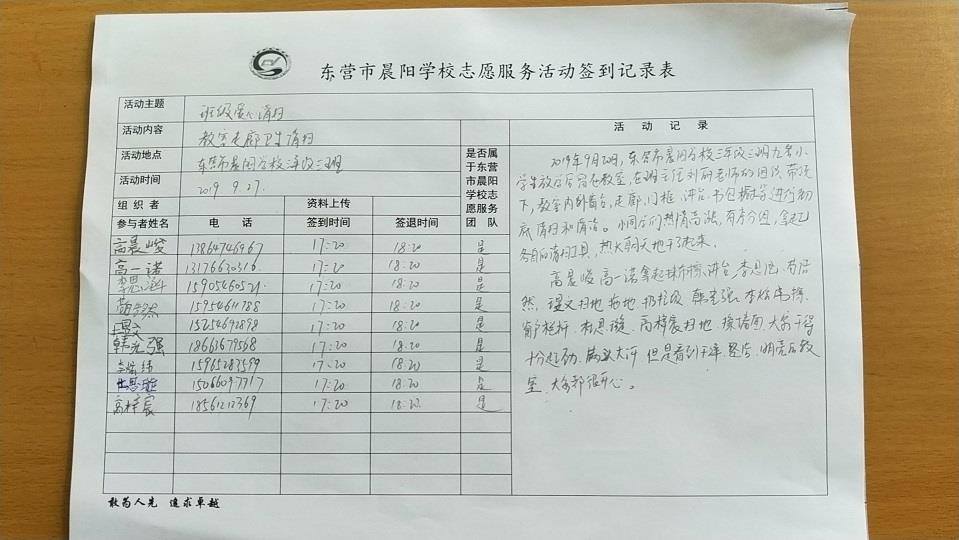 东营市晨阳学校志愿服务活动签到记录表
活动主题 班级爱心清扫
活动内容 教室走廊卫生清扫
活动地点 东营市晨阳学校三年级三班
活动时间 2019 9.27.
组织者 资料上传
参与者姓名 电话 签到时间 签退时间
是否属
于东营
市晨阳
学校志
愿服务
团队
高晨峻 13864746967 17:20 18:20 是
高一诺 13176630316 17:20 18:20 是
李思涵 15905460521 17:20 18:20 是
15954611788 17:20 18:20 是
15254692898 17:20 18:20 是
韩光强 18661679568 17:20 18:20 是
15965283519 17:20 18:20 是
杜思璇 15066097717 17:20 18:20 是
高梓宸 18561212369 17:20 18:20 是
活动记录
2019年9月20日,东营市晨阳学校三年级三班九名小
学生放学后留在教室,在班主任刘丽老师的组织、带领
下,教室内外窗台,走廊,门框,讲台,书包柜等进行彻
底清扫和清洁。小同学们热情高涨,有序分组,拿起
各自的清扫工具,热火朝天地干了起来。
高晨峻 高一诺拿起抹布擦讲台 李思涵
然 扫地 拖地 扔垃圾 韩光强
栏杆 杜思璇 高梓宸扫地 擦墙面 大家干得
十分起劲 满头大汗 但是看到干净 整洁 明亮的教
室 大家都很开心。
敢为人先 追求卓越